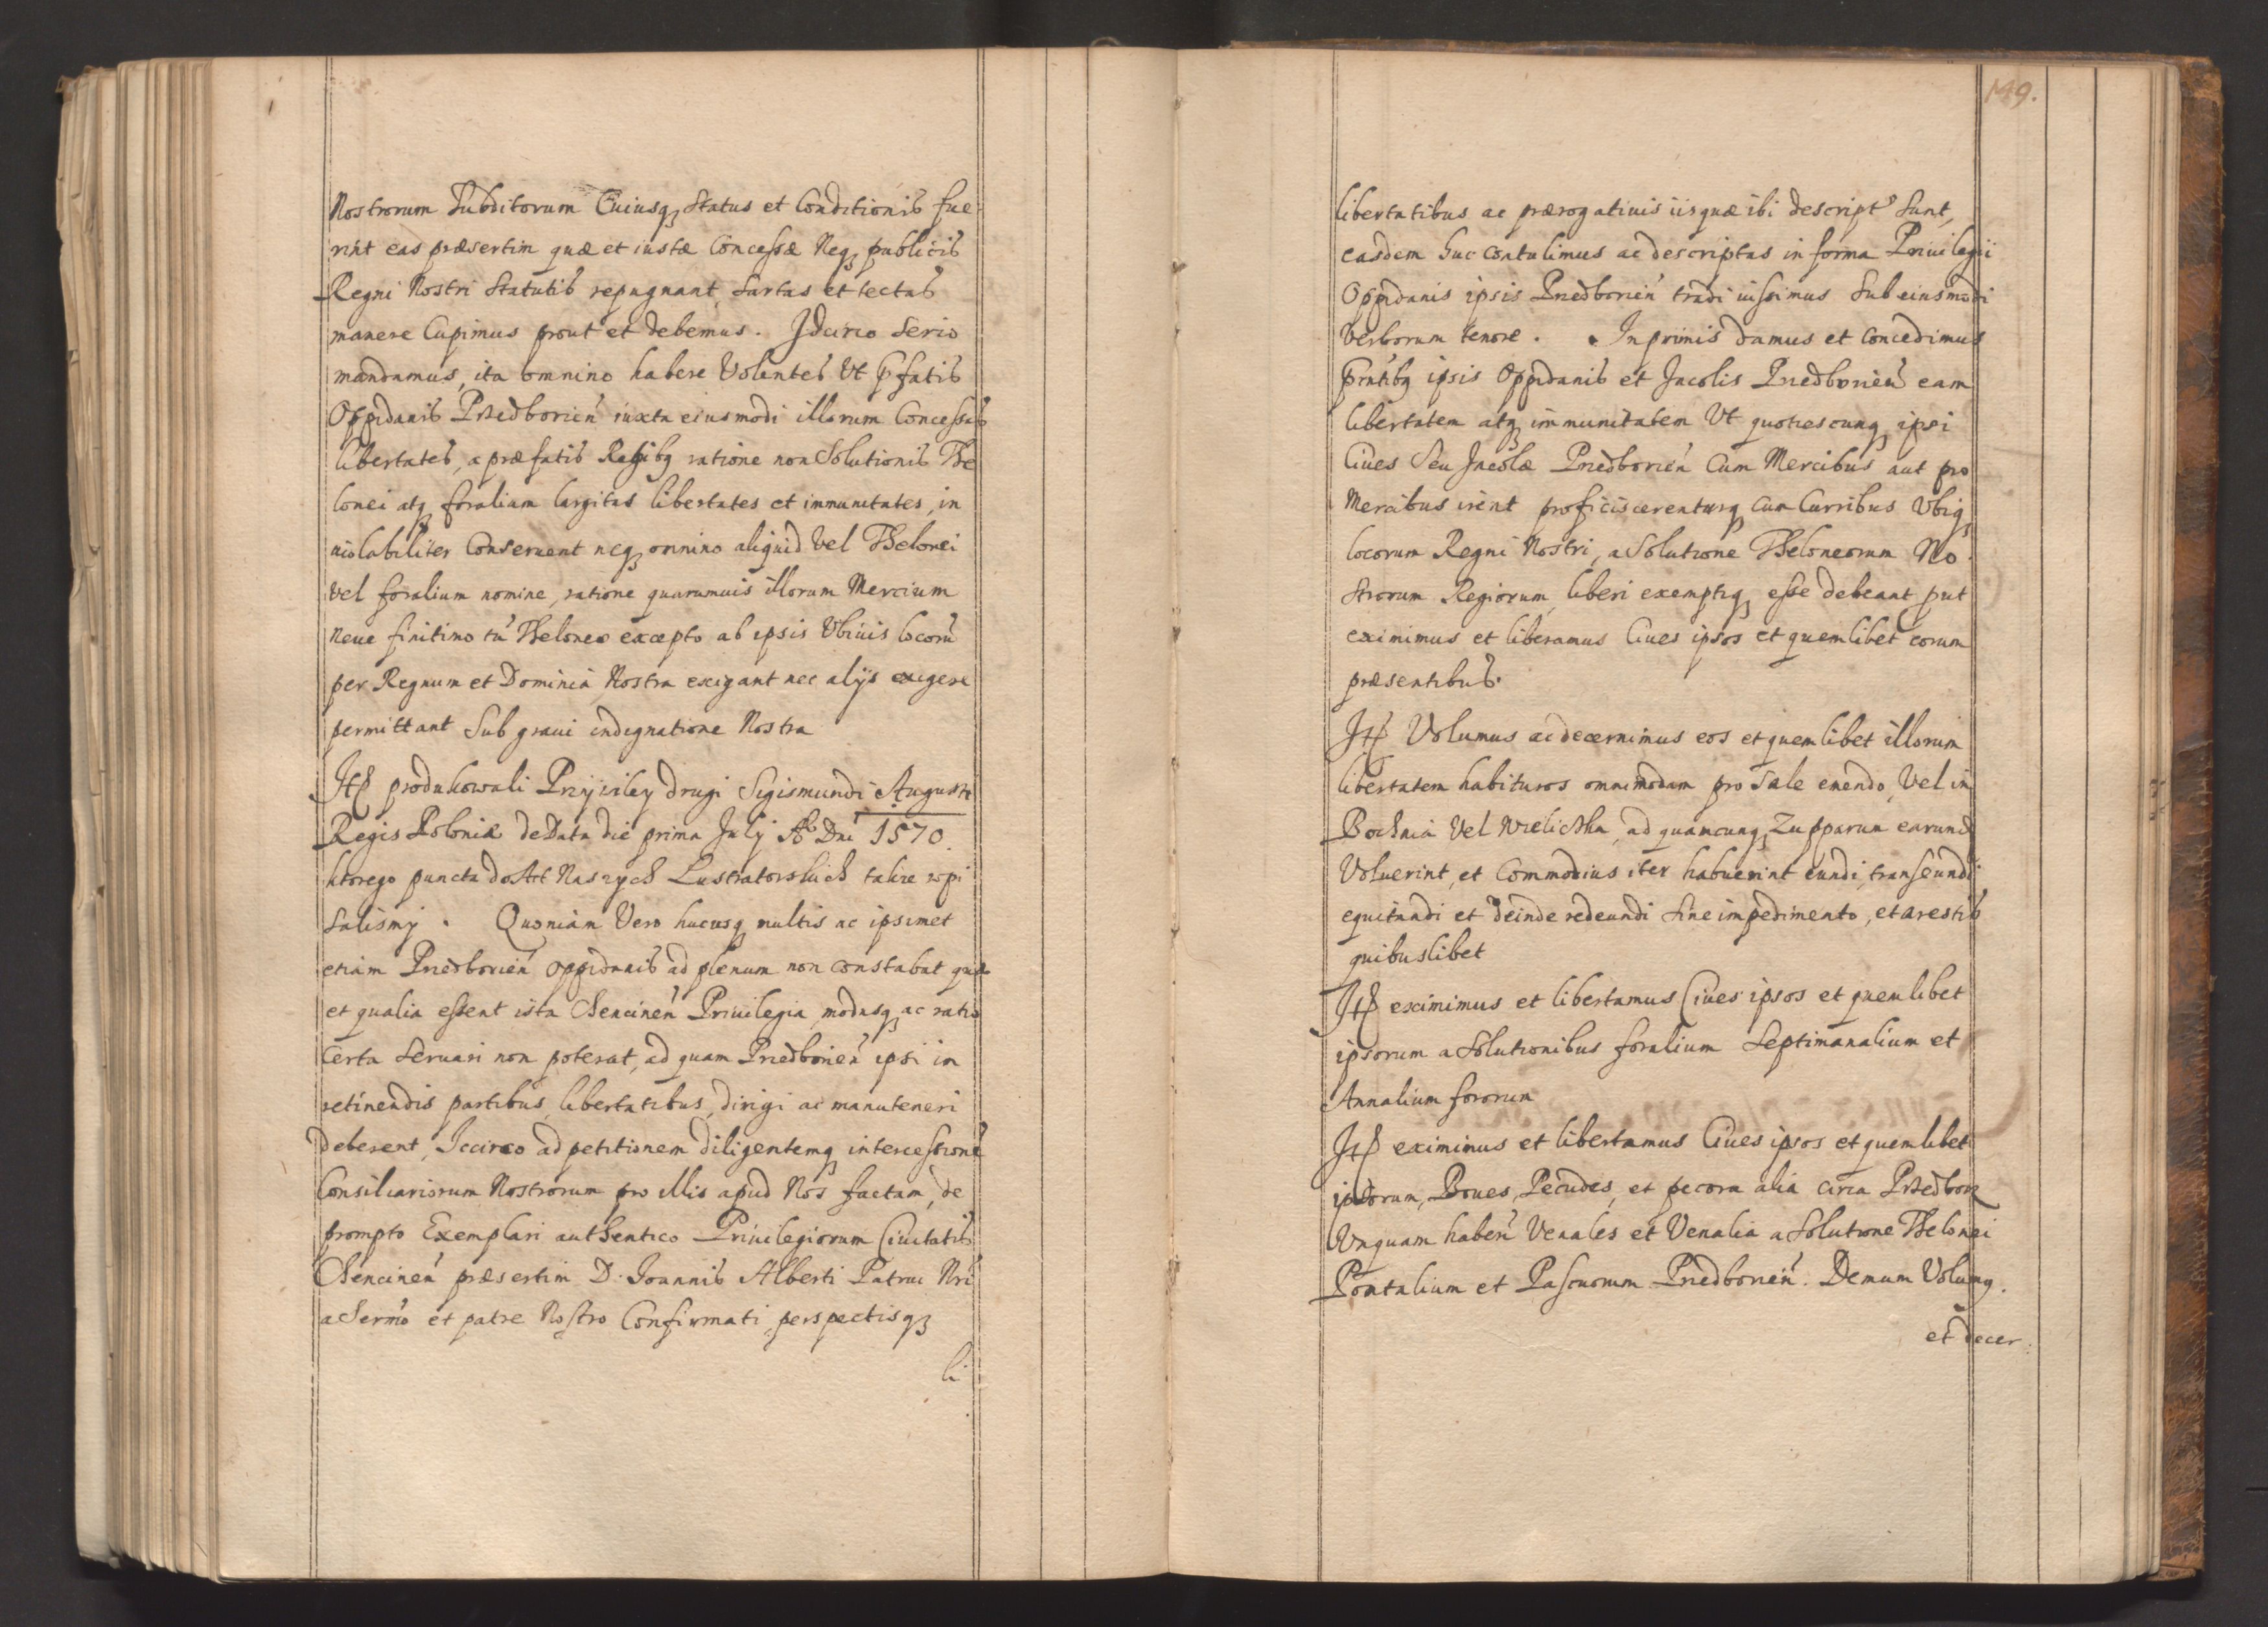 Nostrorum Subditorum Cuiusq Status et Conditionis fue
rint eas præsertim quæ et iustæ Concessæ Neq publicis
Regni Nostri Statutis repugnant, sartas et tectas
manere Cupimus prout et debemus. Idcirco serio
mandamus, ita omnino habere Volentes Vt pfatis
Oppidanis Przedborien iuxta eiusmodi illorum Concessas
libertates, a præfatis Regibq ratione non Solutionis The
lonei atq foralium largitas libertates et immunitates, in
uiolabiliter Conseruent neq omnino aliquid Vel Thelonei
vel foralium nomine, ratione quarumuis illorum Mercium
neue finitimo tñ Theloneo excepto ab ipsis Vbiuis locorũ
per Regnum et Dominia Nostra exigant nec alijs exigere
permittant Sub graui indignatione Nostra
Itp produkowali Przywiley drugi Sigismundi Augusti
Regis Poloniæ de Data die prima July Aõ Dni 1570.
ktorego puncta do Act Naszych Lustratorskich takze wpi
salismy. Quoniam Vero hucusq multis ac ipsimet
etiam Przedborien oppidanis ad plenum non constabat quæ
et qualia essent ista Chencinen Priuilegia, modusq ac ratio
Certa Seruari non poterat, ad quam Przedborien ipsi in
retinendis partibus libertatibus, dirigi ac manuteneri
deberent, Iccirco ad petitionem diligentemq intercessionẽ
Consiliariorum Nostrorum pro illis apud Nos factam, de
prompto Exemplari authentico Priuilegiorum Ciuitatis
Chencinen præsertim D. Joannis Alberti Patrui Nri
a Sermo et patre Nostro Confirmati, perspectisq
li
149.
libertatibus ac prærogatiuis iis quæ ibi descript Sunt,
easdem huc contulimus ac descriptas in forma Priuilegii
Oppidanis ipsis Przedborien tradi iussimus Sub eiusmodi
Verborum tenore. Inprimis damus et concedimus
Pntibq ipsis Oppidanis et Incolis Przedborien eam
libertatem atq immunitatem Vt quotiescunq ipsi
Ciues Seu Incolæ Przedborien Cum Mercibus aut pro
Mercibus irent proficiscerenturq cum Curribus Vbiq
locorum Regni Nostri, a Solutione Theloneorum No
strorum Regiorum, liberi exemptiq esse debeant put
eximimus et liberamus Ciues ipsos et quemlibet eorum
præsentibus.
Itp Volumus ac decernimus eos et quemlibet illorum
libertatem habituros omnimodam pro Sale emendo, Vel in
Bochnia Vel Wieliczka, ad quamcunq Zupparum earund
Voluerint, et Commodius iter habuerint eundi, transeundi
equitandi et deinde redeundi Sine impedimento, et arestis
quibuslibet
Itp eximimus et libertamus Ciues ipsos et quemlibet
ipsorum a Solutionibus foralium Septimanalium et
Annalium fororum
Itp eximimus et libertamus Ciues ipsos et quemlibet
ipsorum, Boues, Pecudes, et pecora alia circa Przedborz
Vnquam haben Venales et Venalia a Solutione Thelonei
Pontalium et Pascuorum Przedborien. Demum Volumq.
et decer